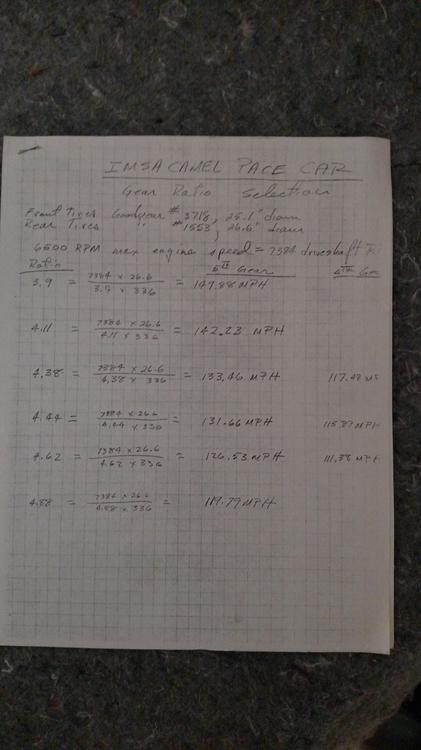 IMSA CAMEL PACE CAR
Gear Ratio Selection
Front Tires Goodyear #3718, 25.1" diam
Rear Tires " #1553, 26.6" diam
6500 RPM max engine speed = 7384 driveshaft R
Ratio 5TH Gear 4TH Gea
3.9 = 7384 x 26.6 / 3.9 x 336 = 149.88 MPH
4.11 = 7384 x 26.6 / 4.11 x 336 = 142.23 MPH
4.38 = 7384 x 26.6 / 4.38 x 336 = 133.46 MPH 117.48 M
4.44 = 7384 x 26.6 / 4.44 x 336 = 131.66 MPH 115.87 MPH
4.62 = 7384 x 26.6 / 4.62 x 336 = 126.53 MPH 111.38 MPH
4.88 = 7384 x 26.6 / 4.88 x 336 = 119.79 MPH